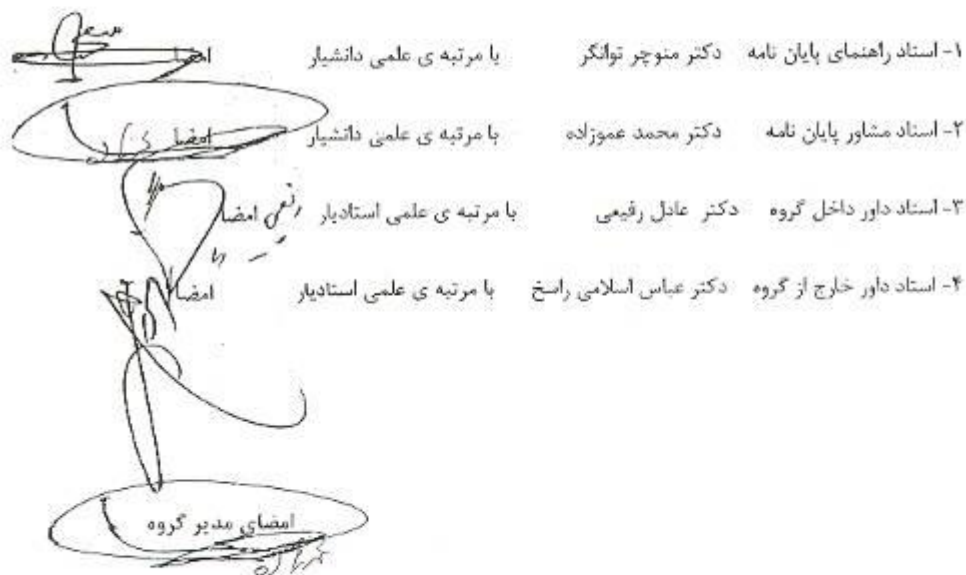 ۱- استاد راهنمای پایان نامه دکتر منوچر توانگر با مرتبه ی علمی دانشیار امضا
۲- استاد مشاور پایان نامه دکتر محمد عموزاده با مرتبه ی علمی دانشیار امضا
۳- استاد داور داخل گروه دکتر عادل رفیعی با مرتبه ی علمی استادیار امضا
۴- استاد داور خارج از گروه دکتر عباس اسلامی راسخ با مرتبه ی علمی استادیار امضا
امضای مدیر گروه